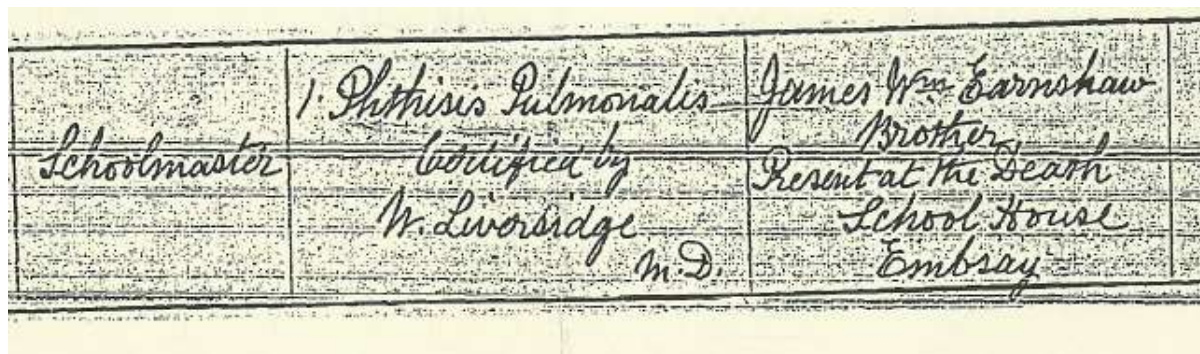 Schoolmaster
1. Phthisis Pulmonalis
Certified by
W. Liversidge
M.D.
James Wm. Earnshaw
Brother
Present at the Death
School House
Embsay